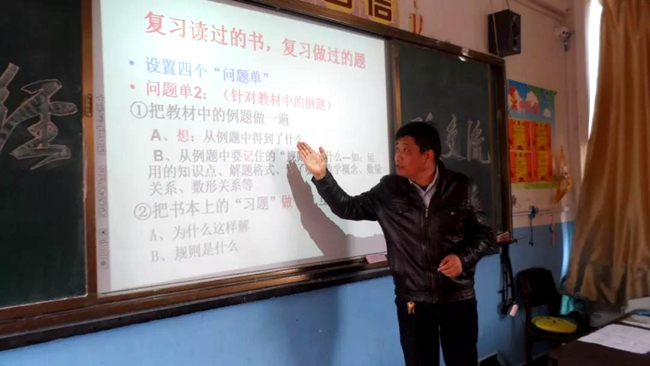 信
复习读过的书，复习做过的题
• 设置四个“问题单”
• 问题单2：（针对教材中的例题）
①把教材中的例题做一遍
A、想：从例题中得到了什么
B、从例题中要记住的“规则”是什么—如：运
用的知识点、解题格式、数学概念、数量
关系、数形关系等
②把书本上的“习题”做
A、为什么这样解
B、规则是什么
经
交流